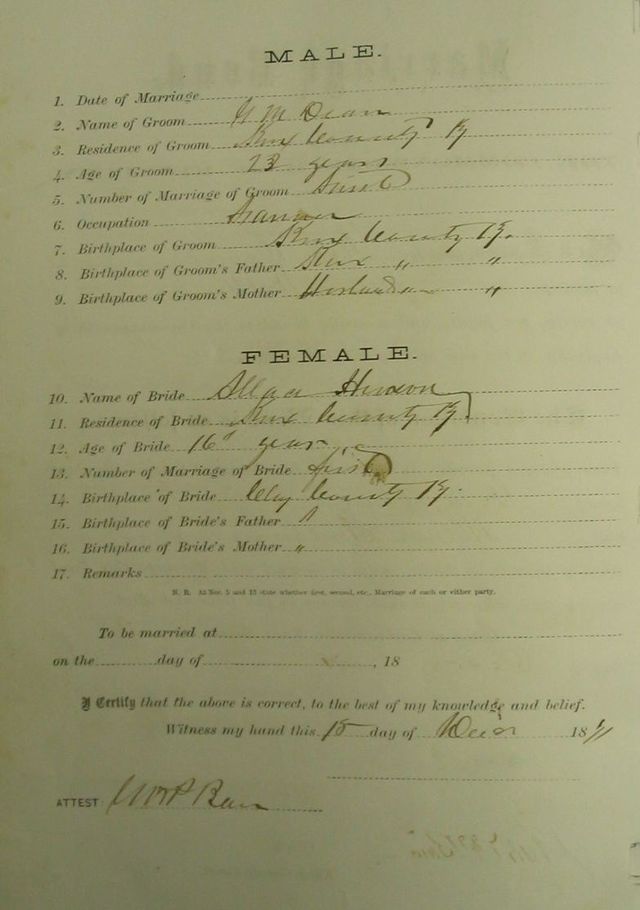 MALE.
1. Date of Marriage
2. Name of Groom G M Dean
3. Residence of Groom Knox County Ky
4. Age of Groom 23 years
5. Number of Marriage of Groom First
6. Occupation Farmer
7. Birthplace of Groom Knox County Ky.
8. Birthplace of Groom's Father Knox " "
9. Birthplace of Groom's Mother "
FEMALE.
10. Name of Bride
11. Residence of Bride Knox County Ky
12. Age of Bride 16 years
13. Number of Marriage of Bride first
14. Birthplace of Bride Clay County Ky.
15. Birthplace of Bride's Father "
16. Birthplace of Bride's Mother "
17. Remarks
N. B. At Nos. 5 and 13 state whether first, second, etc., Marriage of each or either party.
To be married at
on the day of , 18
I Certify that the above is correct, to the best of my knowledge and belief.
Witness my hand this 15 day of 18
ATTEST: